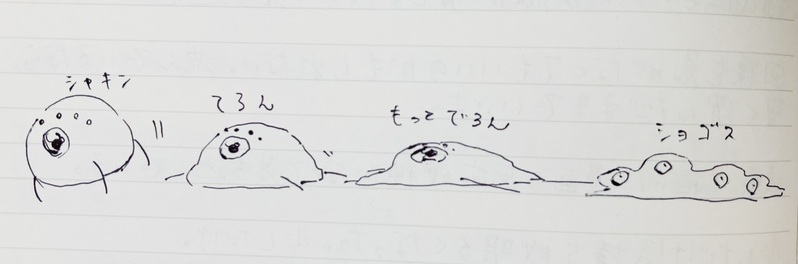 シャキン
てろん
もっとでろん
ショゴス